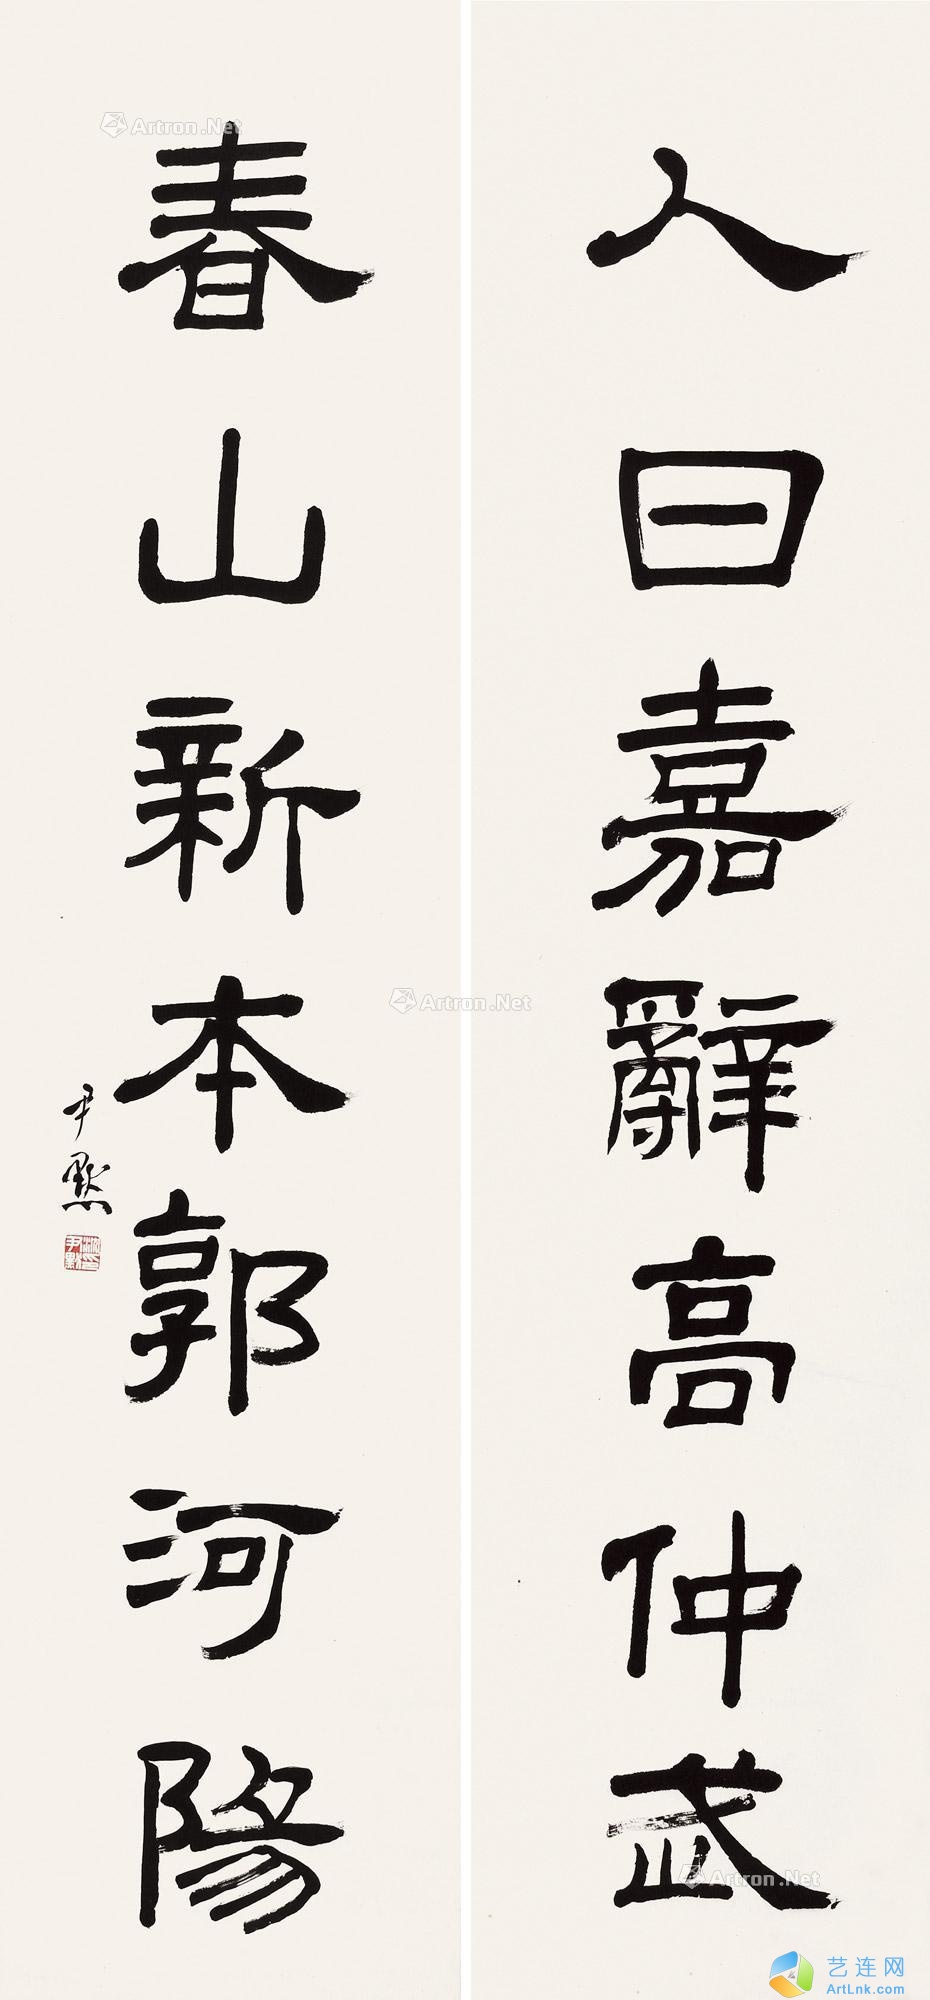 人日嘉辭高仲武
春山新本郭河陽
尹默
Artron.Net
Artron.Net
Artron.Net
艺连网
ArtLnk.com